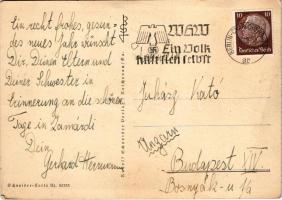 Ein recht frohes, gesun-
des neues Jahr wünscht
Dir, Deinen Eltern und
Deiner Schwester in
Erinnerung an die schönen
Tage in Zamárdi
Dein
Gerhard Herrmann
Schneider-Karte Nr.
WHW
Ein Volk
hilft sich selbst
10
Deutsches Reich
Juhász Kató
Ungarn
Budapest XIV.
Bosnyák-u 1/a